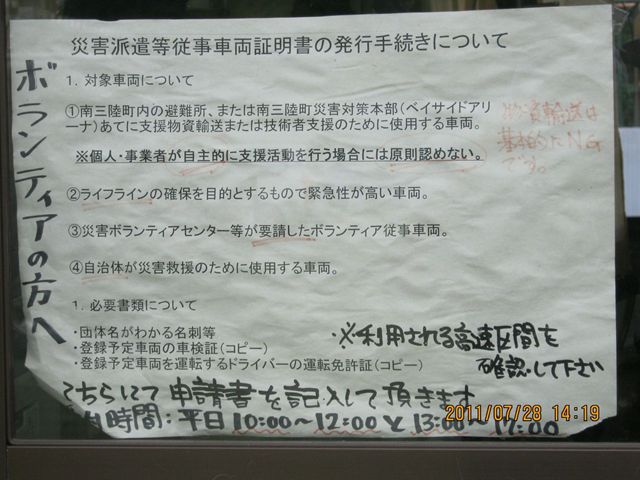 ボランティアの方へ
災害派遣等従事車両証明書の発行手続きについて
1. 対象車両について
①南三陸町内の避難所、または南三陸町災害対策本部(ベイサイドアリ
ーナ)あてに支援物資輸送または技術者支援のために使用する車両。
物資輸送は
基本的にNG
です。
※個人・事業者が自主的に支援活動を行う場合には原則認めない。
②ライフラインの確保を目的とするもので緊急性が高い車両。
③災害ボランティアセンター等が要請したボランティア従事車両。
④自治体が災害救援のために使用する車両。
1. 必要書類について
・団体名がわかる名刺等
・登録予定車両の車検証(コピー)
・登録予定車両を運転するドライバーの運転免許証(コピー)
※利用される高速区間を
確認して下さい
こちらにて申請書を記入して頂きます
時間:平日10:00〜12:00と13:00〜17:00
2011/07/28 14:19